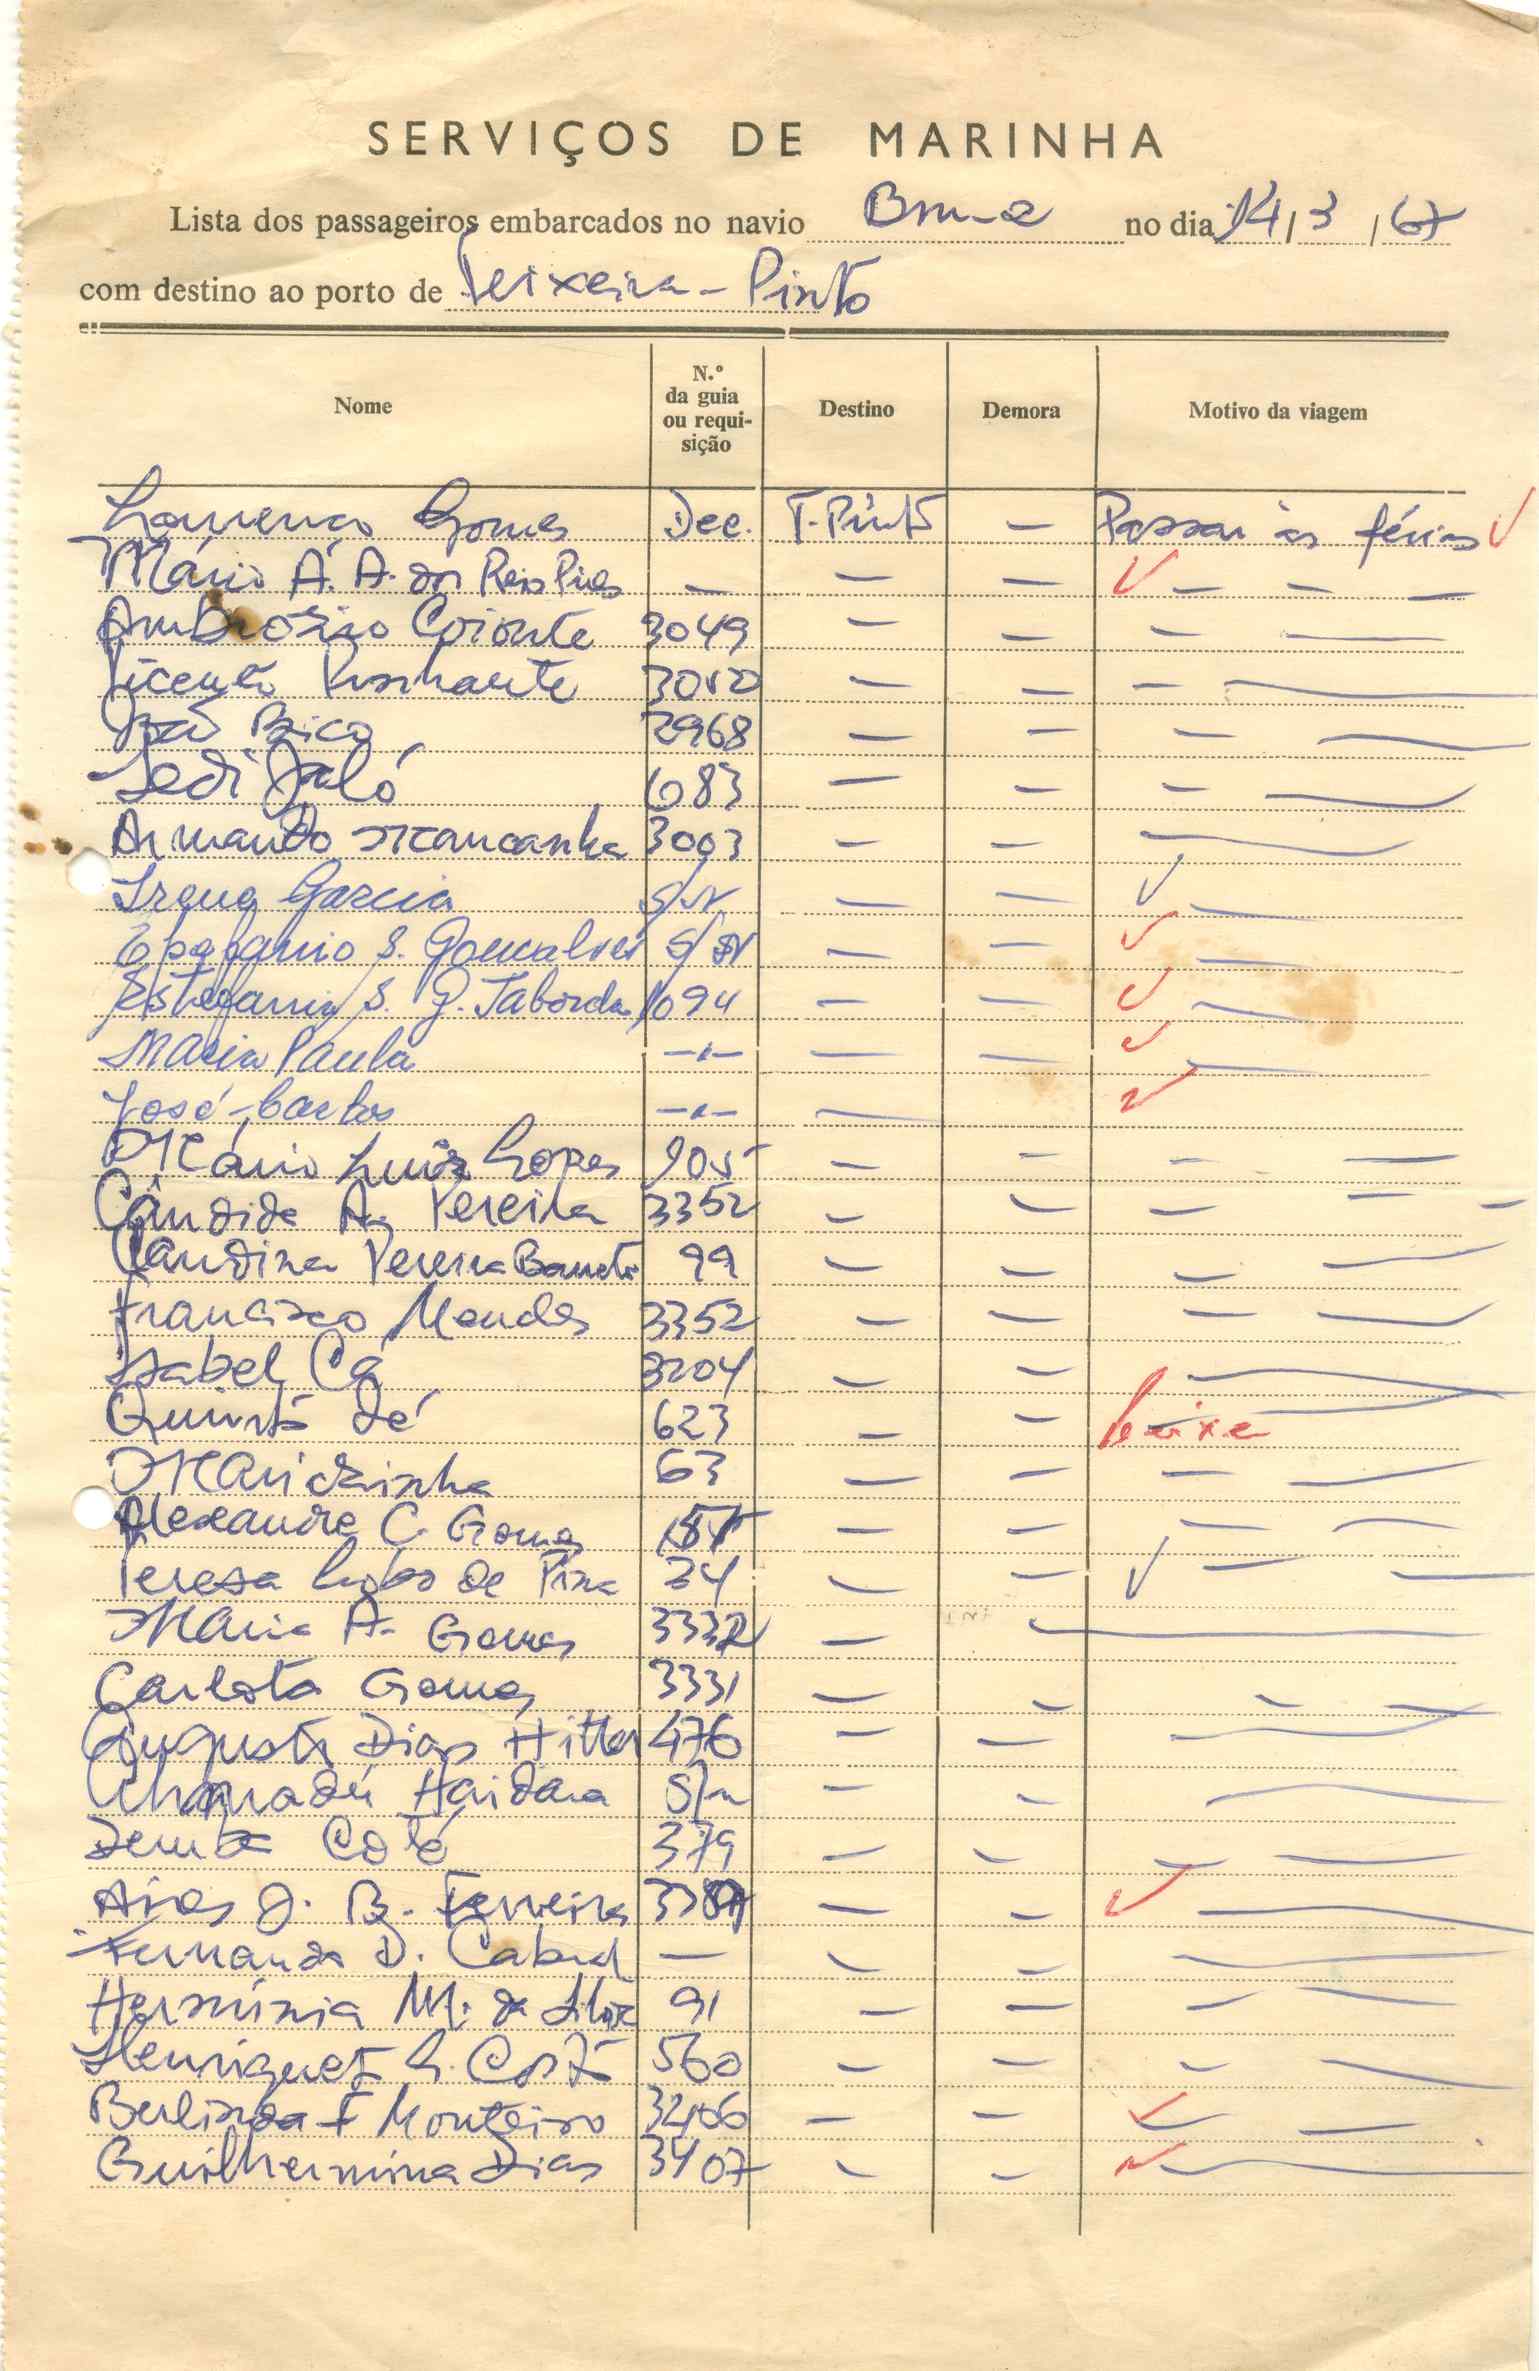 SERVIÇOS DE MARINHA
Lista dos passageiros embarcados no navio no dia 14/3/67
com destino ao porto de Teixeira-Pinto
Nome N.º da guia ou requisição Destino Demora Motivo da viagem
Lourenço Gomes Dec. T. Pinto — Passar as férias
Mário A. A. dos Reis Pires — — — — — —
Ambrósio 3049 — — — —
Vicente — — — —
João Bico 2968 — — — —
Jaló 683 — — — —
Armando Mancanha 3003 — — —
Irena Garcia S/N — — —
Epifanio S. Goncalves S/N — — —
Estefania S. G. Taborda 1094 — — —
Maria Paula —"— — — —
José Carlos —"— —
Mário Luis Lopes 905 — — — —
Cândida A. Pereira 3352 — — — — —
Candina Pereira Barreto 99 — — — —
Francisco Mendes 3352 — — — —
Isabel Cá 3204 — — —
Quintá Dé 623 — — baixa
Mariazinha 63 — — — —
Alexandre C. Gomes — — — —
Teresa Lobo de Pina 34 — — — —
Maria A. Gomes — —
Carlota Gomes 3331 — — — —
Augusta Dias 476 — — —
Haidara S/n — — —
Demba 379 — — — —
Aires J. B. Ferreira — — —
Fernando D. Cabral — — — —
Hermínia M. da Silva 91 — — — —
Henriqueta L. Costa 560 — — — —
Berlinda F Monteiro — — — —
Guilhermina Dias 3407 — — —